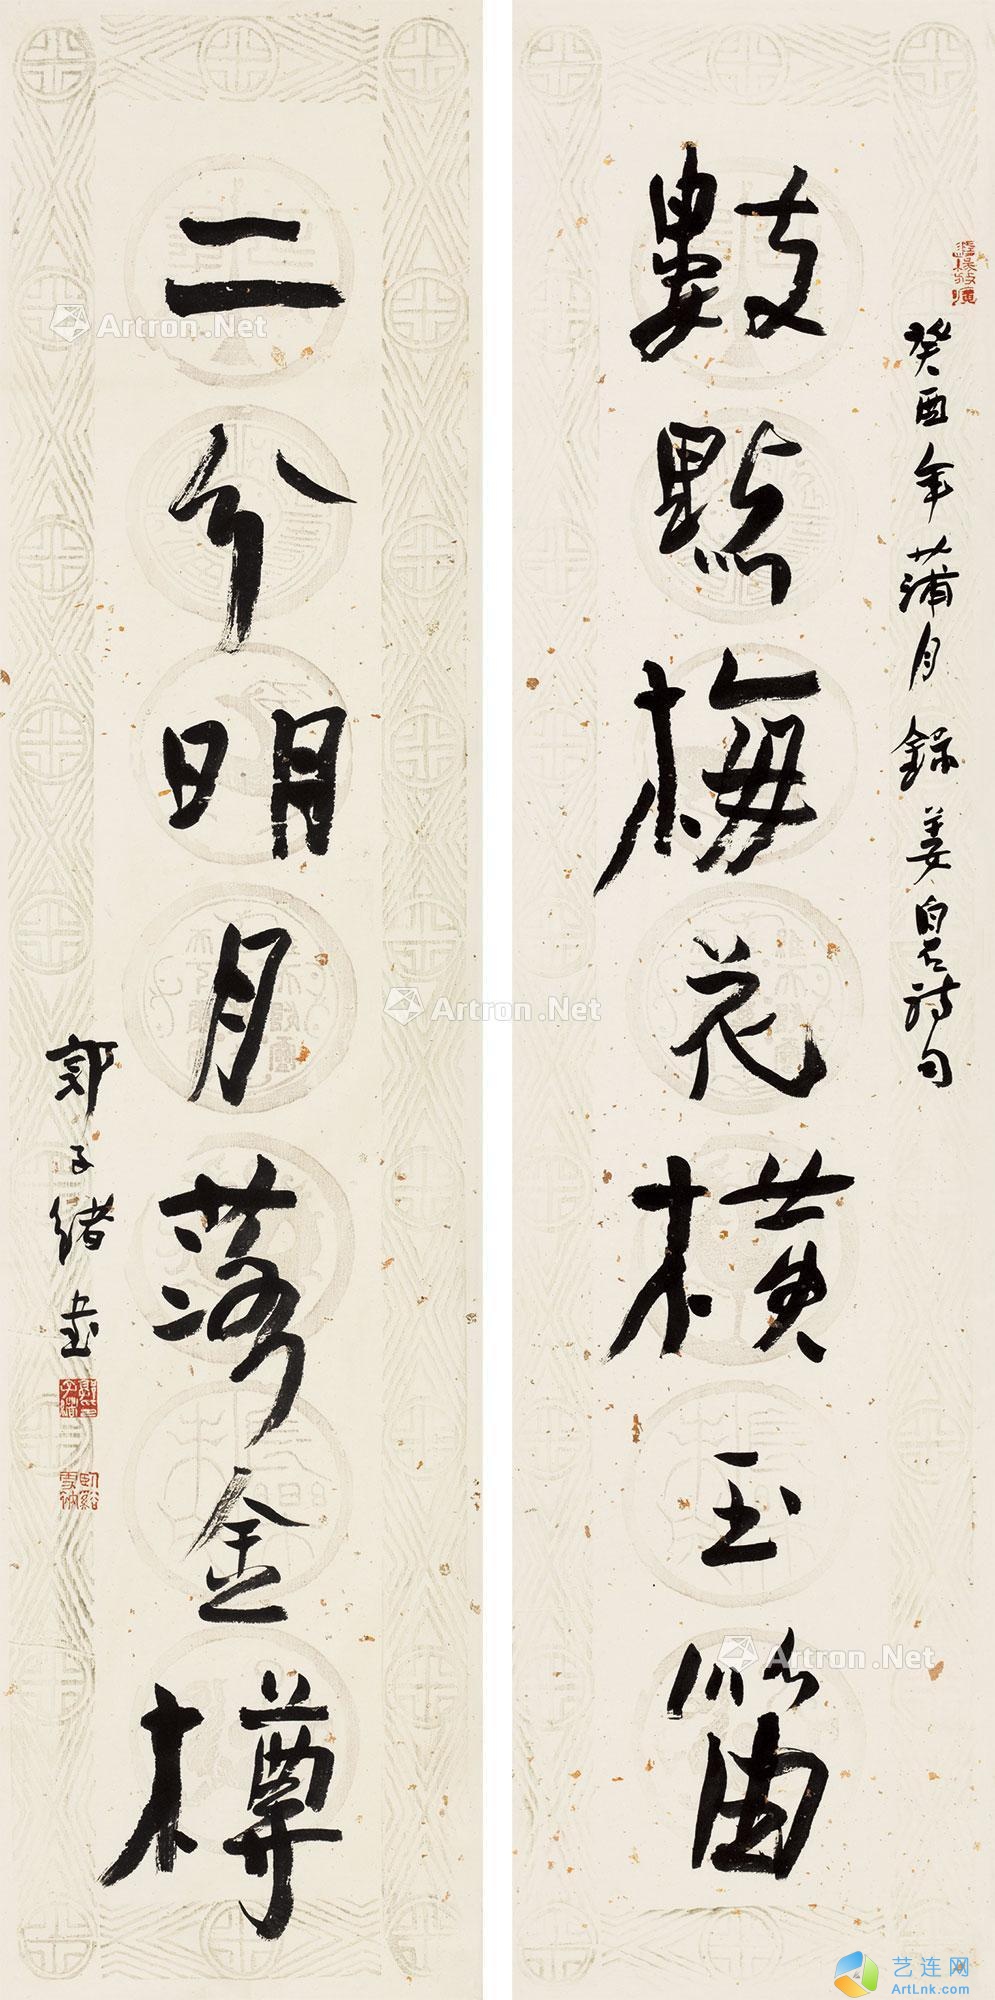 癸酉年蒲月錄姜白石詩句
數點梅花橫玉笛
二分明月落金樽
郭子绪书
Artron.Net
Artron.Net
Artron.Net
Artron.Net
Artron.Net
Artron.Net
艺连网
ArtLnk.com